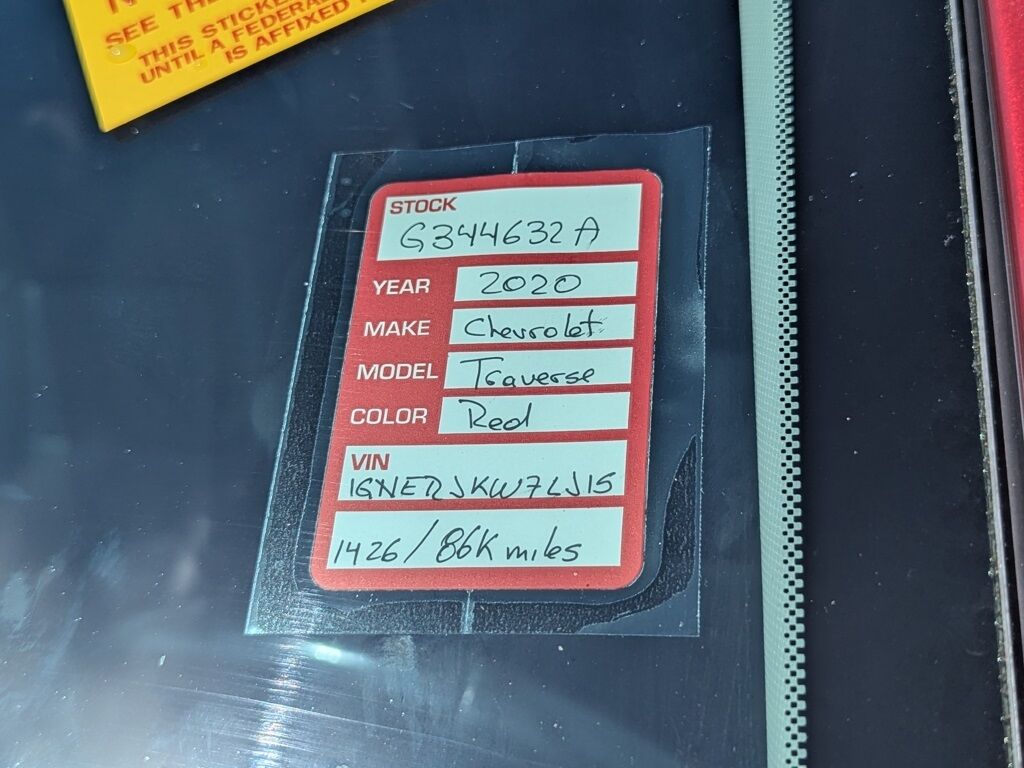 SEE THE
THIS STICKE
UNTIL A FEDERA
IS AFFIXED T
STOCK
G344632A
YEAR 2020
MAKE Chevrolet
MODEL Traverse
COLOR Red
VIN
1GNERJKW7LJ15
1426/86K miles